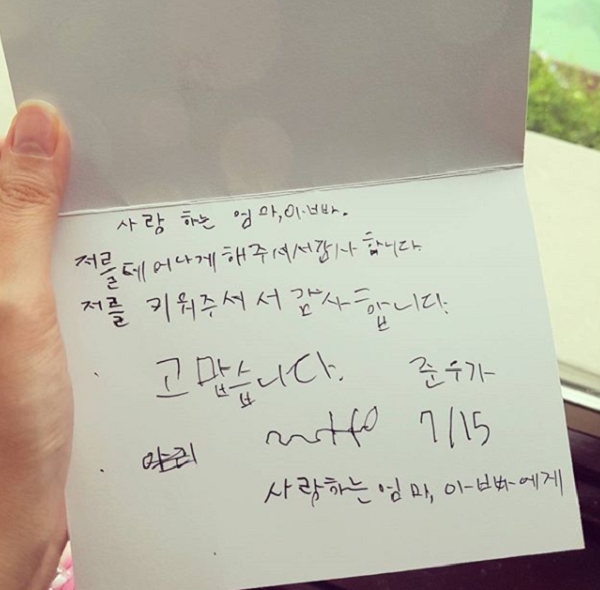 사랑 하는 엄마,아빠.
저를 테어나게 해주셔서감사 합니다
저를 키워주셔서 감사합니다.
고맙습니다. 준우가
7/15
사랑하는엄마, 아빠에게